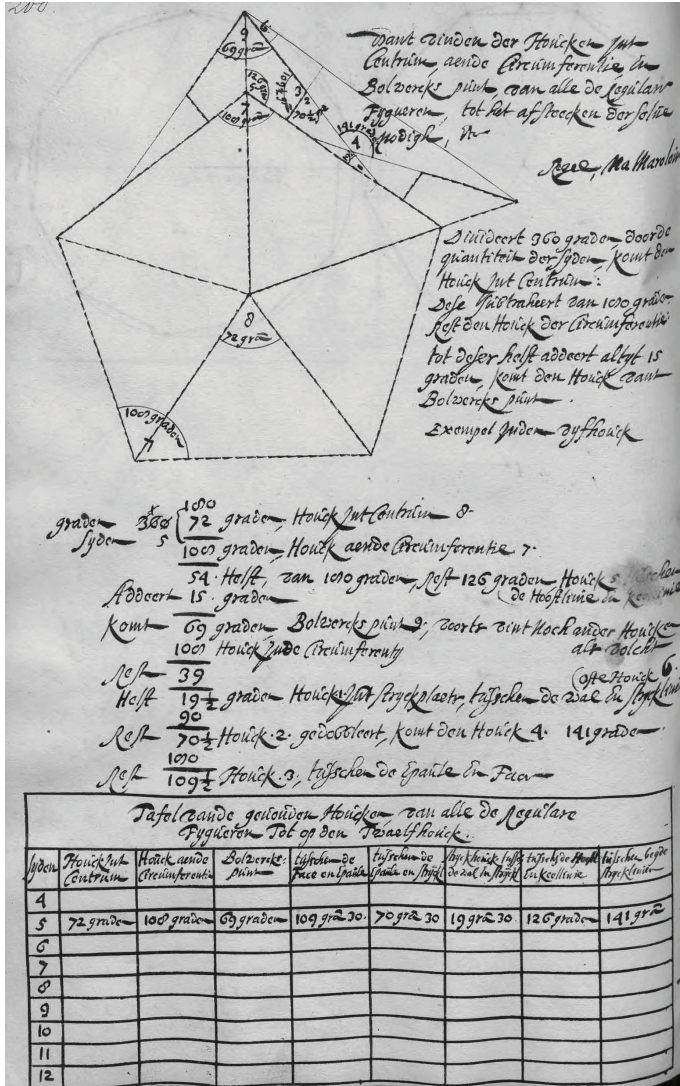 200.
9
69 graden
6
126 gra
5
109½
3
2
70½
141 graden
4
7
108 graden
8
72 graden
108 graden
7
Vant vinden der Houcken Int
Centrum, aende Circumferentie, En
Bolwercks punt, van alle de Regulare
Fygueren, tot het afsteecken der selve
nodigh, &c
Regel, Na Marolois
Divideert 360 graden, door de
quantiteit der syden, komt den
Houck Int Centrum:
Dese Subtraheert van 180 graden
Rest den Houck der Circumferentie
tot deser helft addeert altyt 15
graden, komt den Houck vant
Bolwercks punt.
Exempel Inden vyfhouck
180
graden 360 72 graden, Houck Int Centrum 8.
syden 5
108 graden, Houck aende Circumferentie 7.
54. Helft, van 180 graden, Rest 126 graden Houck 5
Addeert 15. graden
de Hooftlinie En keellinie
komt 69 graden, Bolwercks punt 9; voorts vint noch ander Houcken
108 Houck Inde Circumferenty als volcht
Rest 39
(ofte Houck 6.
Helft 19½ graden Houck 1. Int stryckplaets, tusschen de wal En strycklinie
90
Rest 70½ Houck. 2. gedobbleert, komt den Houck 4. 141 graden.
180
Rest 109½ Houck. 3, tusschen de Epaule En Face
Tafel vande gevonden Houcken, van alle de Regulare
Fygueren Tot op den Twaelfhouck.
syden Houck Int Centrum Houck aende Circumferentie Bolwercks punt tusschen de Face en Epaule tusschen de Epaule en stryckl stryckhouck tussch de wal En stryckl tusschen de Hooftl En keellinie tusschen beyde strycklinien
4
5 72 graden 108 graden 69 graden 109 gra 30 70 gra 30 19 gra 30 126 graden 141 gra
6
7
8
9
10
11
12